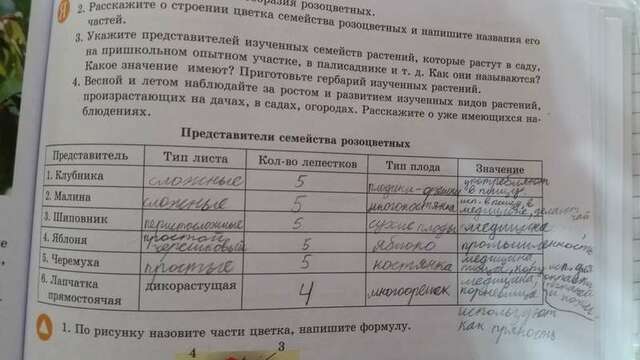 образия розоцветных.
Я 2. Расскажите о строении цветка семейства розоцветных и напишите названия его
частей.
3. Укажите представителей изученных семейств растений, которые растут в саду,
на пришкольном опытном участке, в палисаднике и т. д. Как они называются?
Какое значение имеют? Приготовьте гербарий изученных растений.
4. Весной и летом наблюдайте за ростом и развитием изученных видов растений,
произрастающих на дачах, в садах, огородах. Расскажите о уже имеющихся на-
блюдениях.
Представители семейства розоцветных
Представитель Тип листа Кол-во лепестков Тип плода Значение
1. Клубника сложные 5 употребляют в пищу
2. Малина сложные 5 многокостянка медицине, чай
3. Шиповник перистосложные 5 сухие плоды медицина
4. Яблоня простой черешковый 5 яблоко промышленность
5. Черемуха простые 5 костянка медицина
6. Лапчатка прямостоячая дикорастущая 4 многоорешек медицина, корневища
используют
как пряность
1. По рисунку назовите части цветка, напишите формулу.
4 3